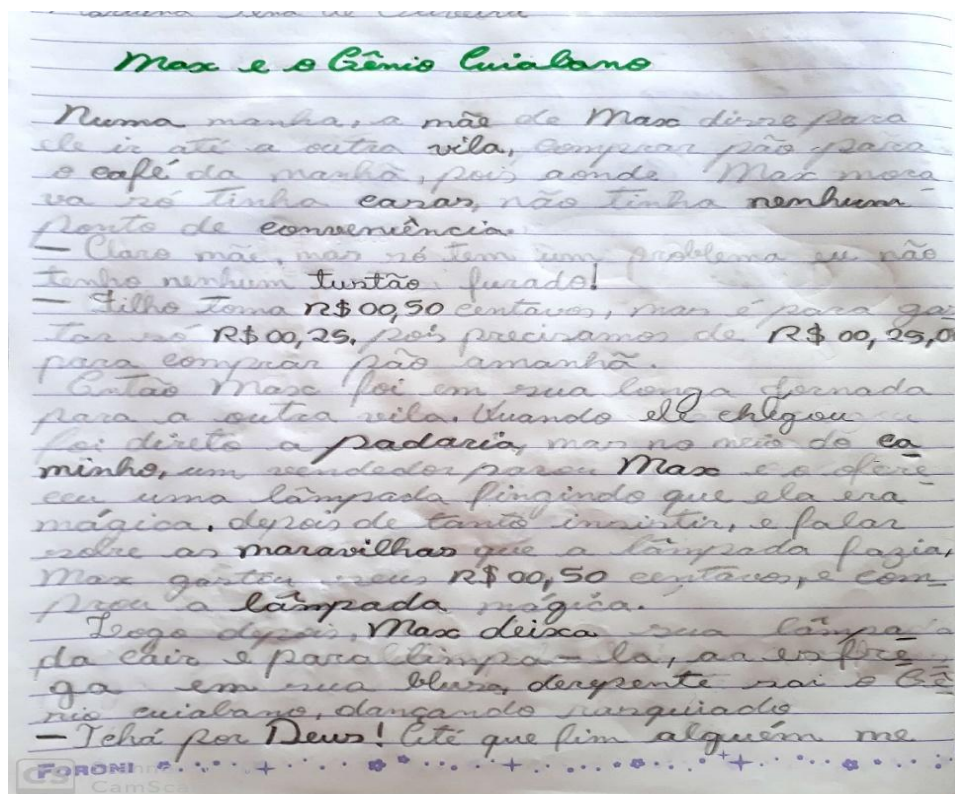 Mariana Sena de Oliveira
Max e o Gênio Cuiabano
Numa manha, a mãe de Max disse para
ele ir até a outra vila, comprar pão para
o café da manhã, pois aonde Max mora
va só tinha casas, não tinha nenhum
ponto de conveniência.
— Claro mãe, mas só tem um problema eu não
tenho nenhum tustão furado!
— Filho toma R$ 00,50 centavos, mas é para gas
tar só R$ 00,25. pois precisamos de R$ 00,25,0
para comprar pão amanhã.
Então Max foi em sua longa jornada
para a outra vila. Quando ele chegou
foi direto a padaria, mas no meio do ca
minho, um vendedor parou Max e o ofere
ceu uma lâmpada fingindo que ela era
mágica. depois de tanto insistir, e falar
sobre as maravilhas que a lâmpada fazia,
Max gastou seus R$ 00,50 centavos, e com
prou a lâmpada mágica.
Logo depois, Max deixa sua lâmpa
da cair e para limpa-la, as esfre
ga em sua blusa, derepente sai o Gê
nio cuiabano, dançando rasquiado
— Tchá por Deus! Até que fim alguém me
FORONI
CS CamSca